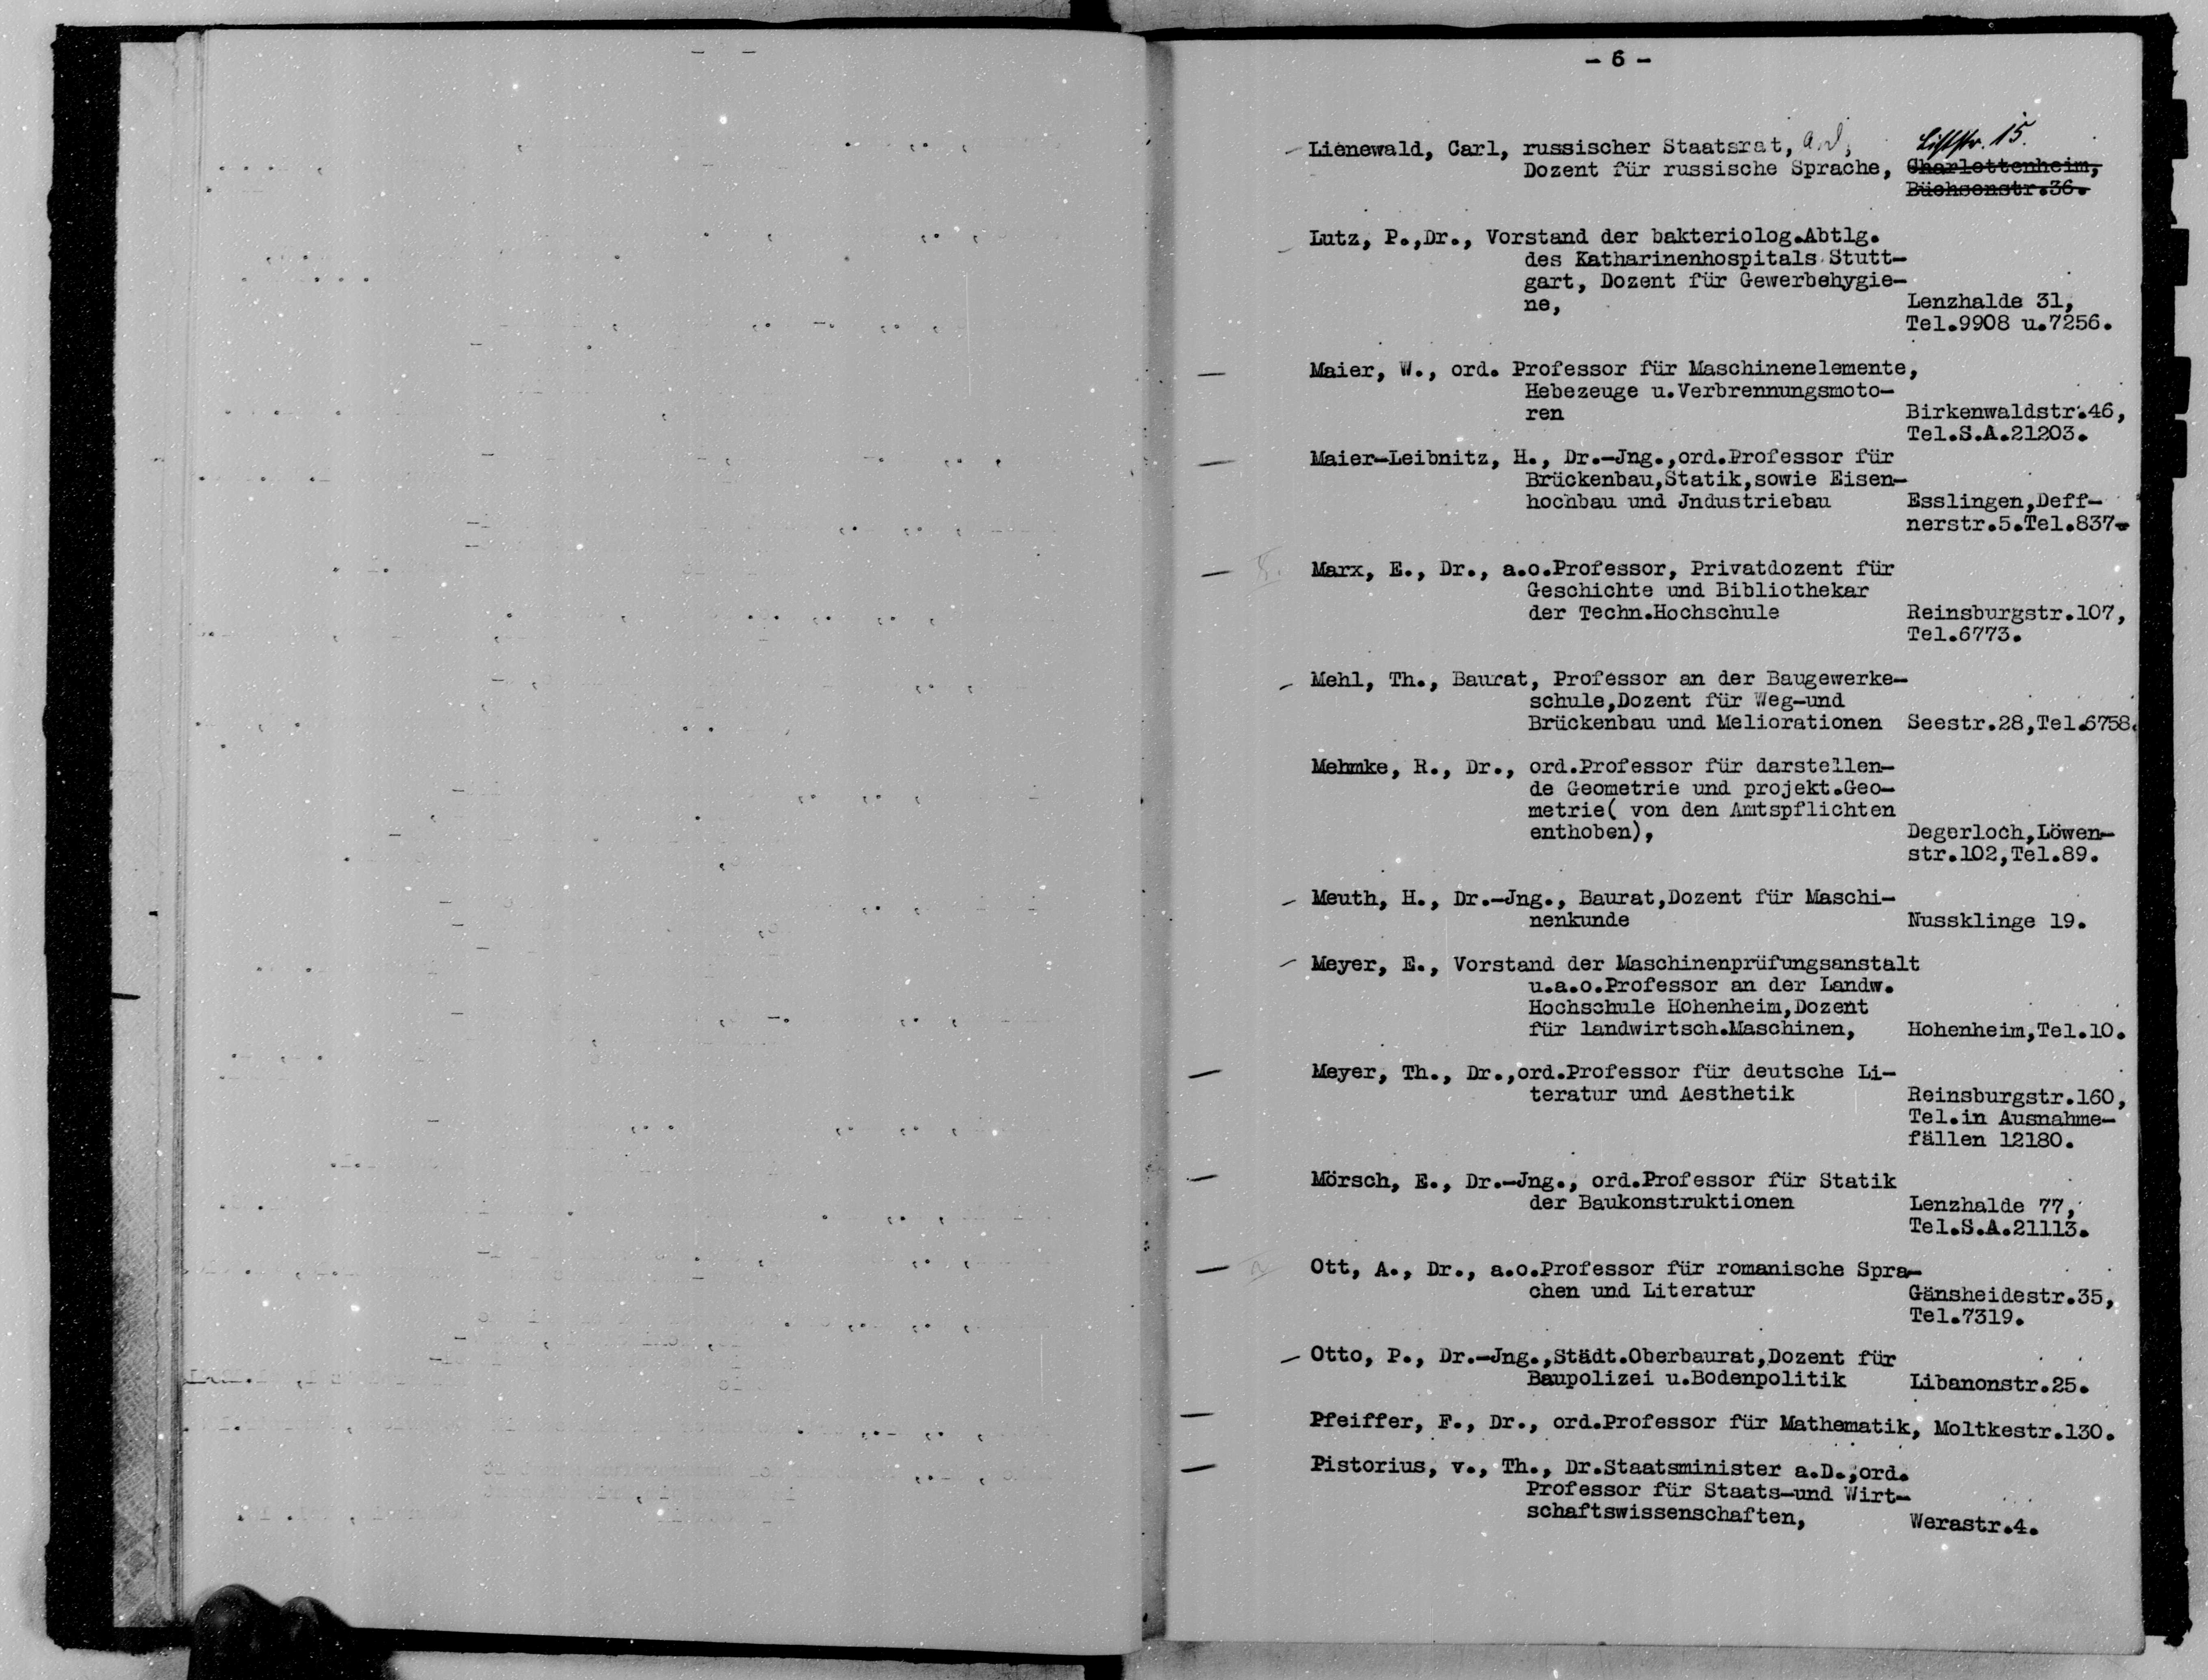 - 6 -
Lienewald, Carl, russischer Staatsrat, a.D., Listtr. 15.
Dozent für russische Sprache, Charlottenheim,
Büchsenstr.36.
Lutz, P.,Dr., Vorstand der bakteriolog.Abtlg.
des Katharinenhospitals Stutt-
gart, Dozent für Gewerbehygie-
ne, Lenzhalde 31,
Tel.9908 u.7256.
Maier, W., ord. Professor für Maschinenelemente,
Hebezeuge u.Verbrennungsmoto-
ren Birkenwaldstr.46,
Tel.S.A.21203.
Maier-Leibnitz, H., Dr.-Jng.,ord.Professor für
Brückenbau,Statik,sowie Eisen-
hochbau und Jndustriebau Esslingen,Deff-
nerstr.5.Tel.837.
Marx, E., Dr., a.o.Professor, Privatdozent für
Geschichte und Bibliothekar
der Techn.Hochschule Reinsburgstr.107,
Tel.6773.
Mehl, Th., Baurat, Professor an der Baugewerke-
schule,Dozent für Weg-und
Brückenbau und Meliorationen Seestr.28,Tel.6758.
Mehmke, R., Dr., ord.Professor für darstellen-
de Geometrie und projekt.Geo-
metrie( von den Amtspflichten
enthoben), Degerloch,Löwen-
str.102,Tel.89.
Meuth, H., Dr.-Jng., Baurat,Dozent für Maschi-
nenkunde Nussklinge 19.
Meyer, E., Vorstand der Maschinenprüfungsanstalt
u.a.o.Professor an der Landw.
Hochschule Hohenheim,Dozent
für landwirtsch.Maschinen, Hohenheim,Tel.10.
Meyer, Th., Dr.,ord.Professor für deutsche Li-
teratur und Aesthetik Reinsburgstr.160,
Tel.in Ausnahme-
fällen 12180.
Mörsch, E., Dr.-Jng., ord.Professor für Statik
der Baukonstruktionen Lenzhalde 77,
Tel.S.A.21113.
Ott, A., Dr., a.o.Professor für romanische Spra-
chen und Literatur Gänsheidestr.35,
Tel.7319.
Otto, P., Dr.-Jng.,Städt.Oberbaurat,Dozent für
Baupolizei u.Bodenpolitik Libanonstr.25.
Pfeiffer, F., Dr., ord.Professor für Mathematik, Moltkestr.130.
Pistorius, v., Th., Dr.Staatsminister a.D.,ord.
Professor für Staats-und Wirt-
schaftswissenschaften, Werastr.4.